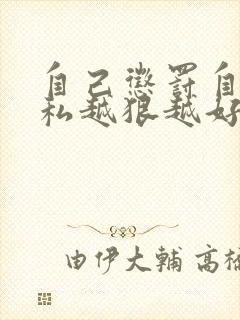 自己懲罰自
私越狠越好
由伊大輔 高橋